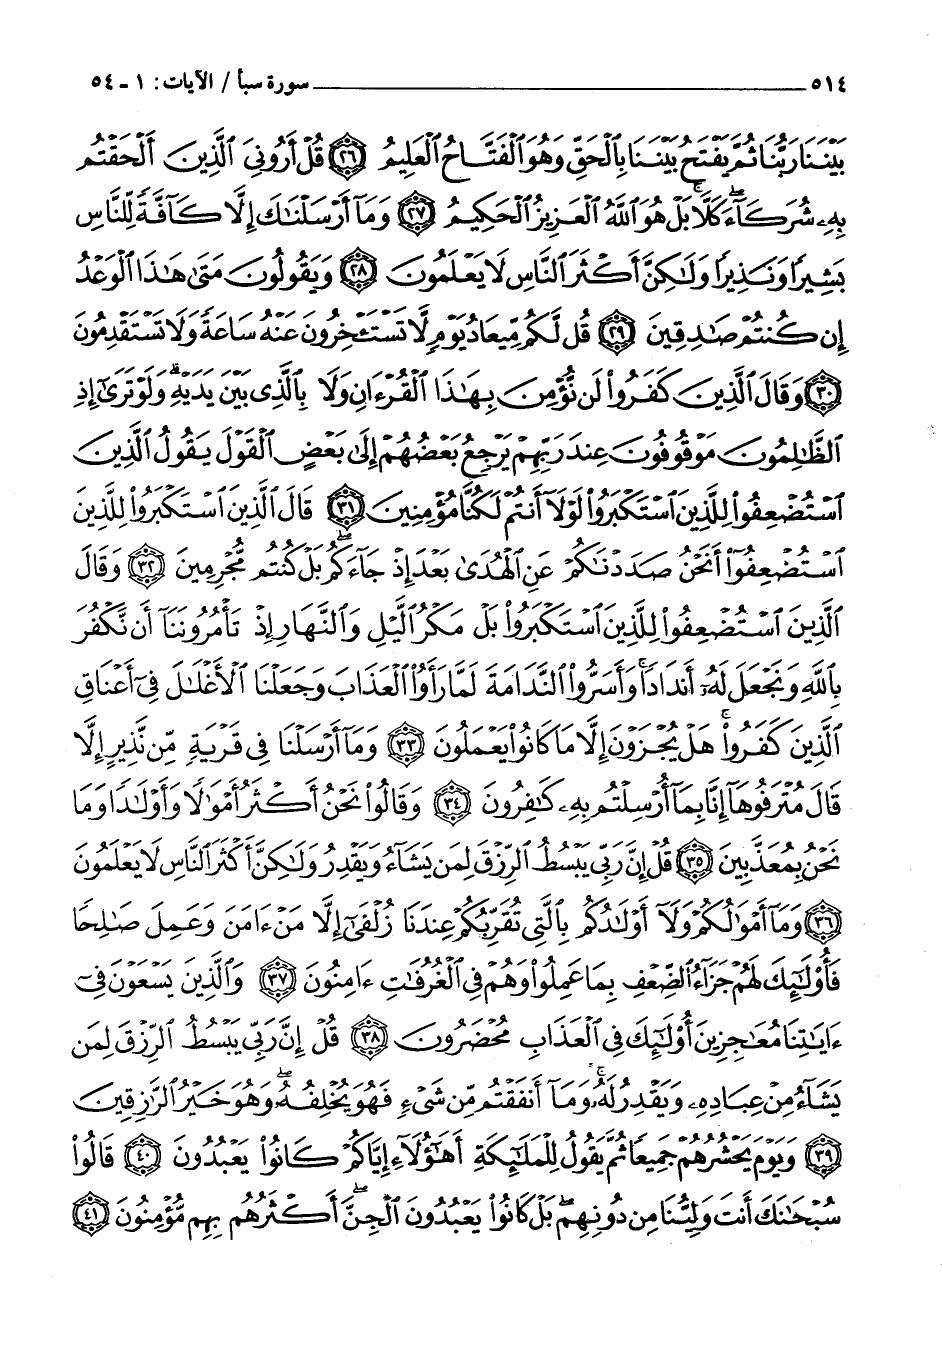 ٥١٤ سورة سبأ / الآيات: ١ - ٥٤
بَيْنَنَا رَبُّنَا ثُمَّ يَفْتَحُ بَيْنَنَا بِٱلْحَقِّ وَهُوَ ٱلْفَتَّاحُ ٱلْعَلِيمُ ﴿٢٦﴾ قُلْ أَرُونِىَ ٱلَّذِينَ أَلْحَقْتُم
بِهِۦ شُرَكَآءَ ۖ كَلَّا ۚ بَلْ هُوَ ٱللَّهُ ٱلْعَزِيزُ ٱلْحَكِيمُ ﴿٢٧﴾ وَمَآ أَرْسَلْنَٰكَ إِلَّا كَآفَّةً لِّلنَّاسِ
بَشِيرًا وَنَذِيرًا وَلَٰكِنَّ أَكْثَرَ ٱلنَّاسِ لَا يَعْلَمُونَ ﴿٢٨﴾ وَيَقُولُونَ مَتَىٰ هَٰذَا ٱلْوَعْدُ
إِن كُنتُمْ صَٰدِقِينَ ﴿٢٩﴾ قُل لَّكُم مِّيعَادُ يَوْمٍ لَّا تَسْتَـْٔخِرُونَ عَنْهُ سَاعَةً وَلَا تَسْتَقْدِمُونَ
﴿٣٠﴾ وَقَالَ ٱلَّذِينَ كَفَرُوا۟ لَن نُّؤْمِنَ بِهَٰذَا ٱلْقُرْءَانِ وَلَا بِٱلَّذِى بَيْنَ يَدَيْهِ ۗ وَلَوْ تَرَىٰٓ إِذِ
ٱلظَّٰلِمُونَ مَوْقُوفُونَ عِندَ رَبِّهِمْ يَرْجِعُ بَعْضُهُمْ إِلَىٰ بَعْضٍ ٱلْقَوْلَ يَقُولُ ٱلَّذِينَ
ٱسْتُضْعِفُوا۟ لِلَّذِينَ ٱسْتَكْبَرُوا۟ لَوْلَآ أَنتُمْ لَكُنَّا مُؤْمِنِينَ ﴿٣١﴾ قَالَ ٱلَّذِينَ ٱسْتَكْبَرُوا۟ لِلَّذِينَ
ٱسْتُضْعِفُوٓا۟ أَنَحْنُ صَدَدْنَٰكُمْ عَنِ ٱلْهُدَىٰ بَعْدَ إِذْ جَآءَكُم ۖ بَلْ كُنتُم مُّجْرِمِينَ ﴿٣٢﴾ وَقَالَ
ٱلَّذِينَ ٱسْتُضْعِفُوا۟ لِلَّذِينَ ٱسْتَكْبَرُوا۟ بَلْ مَكْرُ ٱلَّيْلِ وَٱلنَّهَارِ إِذْ تَأْمُرُونَنَآ أَن نَّكْفُرَ
بِٱللَّهِ وَنَجْعَلَ لَهُۥٓ أَندَادًا ۚ وَأَسَرُّوا۟ ٱلنَّدَامَةَ لَمَّا رَأَوُا۟ ٱلْعَذَابَ وَجَعَلْنَا ٱلْأَغْلَٰلَ فِىٓ أَعْنَاقِ
ٱلَّذِينَ كَفَرُوا۟ ۚ هَلْ يُجْزَوْنَ إِلَّا مَا كَانُوا۟ يَعْمَلُونَ ﴿٣٣﴾ وَمَآ أَرْسَلْنَا فِى قَرْيَةٍ مِّن نَّذِيرٍ إِلَّا
قَالَ مُتْرَفُوهَآ إِنَّا بِمَآ أُرْسِلْتُم بِهِۦ كَٰفِرُونَ ﴿٣٤﴾ وَقَالُوا۟ نَحْنُ أَكْثَرُ أَمْوَٰلًا وَأَوْلَٰدًا وَمَا
نَحْنُ بِمُعَذَّبِينَ ﴿٣٥﴾ قُلْ إِنَّ رَبِّى يَبْسُطُ ٱلرِّزْقَ لِمَن يَشَآءُ وَيَقْدِرُ وَلَٰكِنَّ أَكْثَرَ ٱلنَّاسِ لَا يَعْلَمُونَ
﴿٣٦﴾ وَمَآ أَمْوَٰلُكُمْ وَلَآ أَوْلَٰدُكُم بِٱلَّتِى تُقَرِّبُكُمْ عِندَنَا زُلْفَىٰٓ إِلَّا مَنْ ءَامَنَ وَعَمِلَ صَٰلِحًا
فَأُو۟لَٰٓئِكَ لَهُمْ جَزَآءُ ٱلضِّعْفِ بِمَا عَمِلُوا۟ وَهُمْ فِى ٱلْغُرُفَٰتِ ءَامِنُونَ ﴿٣٧﴾ وَٱلَّذِينَ يَسْعَوْنَ فِىٓ
ءَايَٰتِنَا مُعَٰجِزِينَ أُو۟لَٰٓئِكَ فِى ٱلْعَذَابِ مُحْضَرُونَ ﴿٣٨﴾ قُلْ إِنَّ رَبِّى يَبْسُطُ ٱلرِّزْقَ لِمَن
يَشَآءُ مِنْ عِبَادِهِۦ وَيَقْدِرُ لَهُۥ ۚ وَمَآ أَنفَقْتُم مِّن شَىْءٍ فَهُوَ يُخْلِفُهُۥ ۖ وَهُوَ خَيْرُ ٱلرَّٰزِقِينَ
﴿٣٩﴾ وَيَوْمَ يَحْشُرُهُمْ جَمِيعًا ثُمَّ يَقُولُ لِلْمَلَٰٓئِكَةِ أَهَٰٓؤُلَآءِ إِيَّاكُمْ كَانُوا۟ يَعْبُدُونَ ﴿٤٠﴾ قَالُوا۟
سُبْحَٰنَكَ أَنتَ وَلِيُّنَا مِن دُونِهِم ۖ بَلْ كَانُوا۟ يَعْبُدُونَ ٱلْجِنَّ ۖ أَكْثَرُهُم بِهِم مُّؤْمِنُونَ ﴿٤١﴾